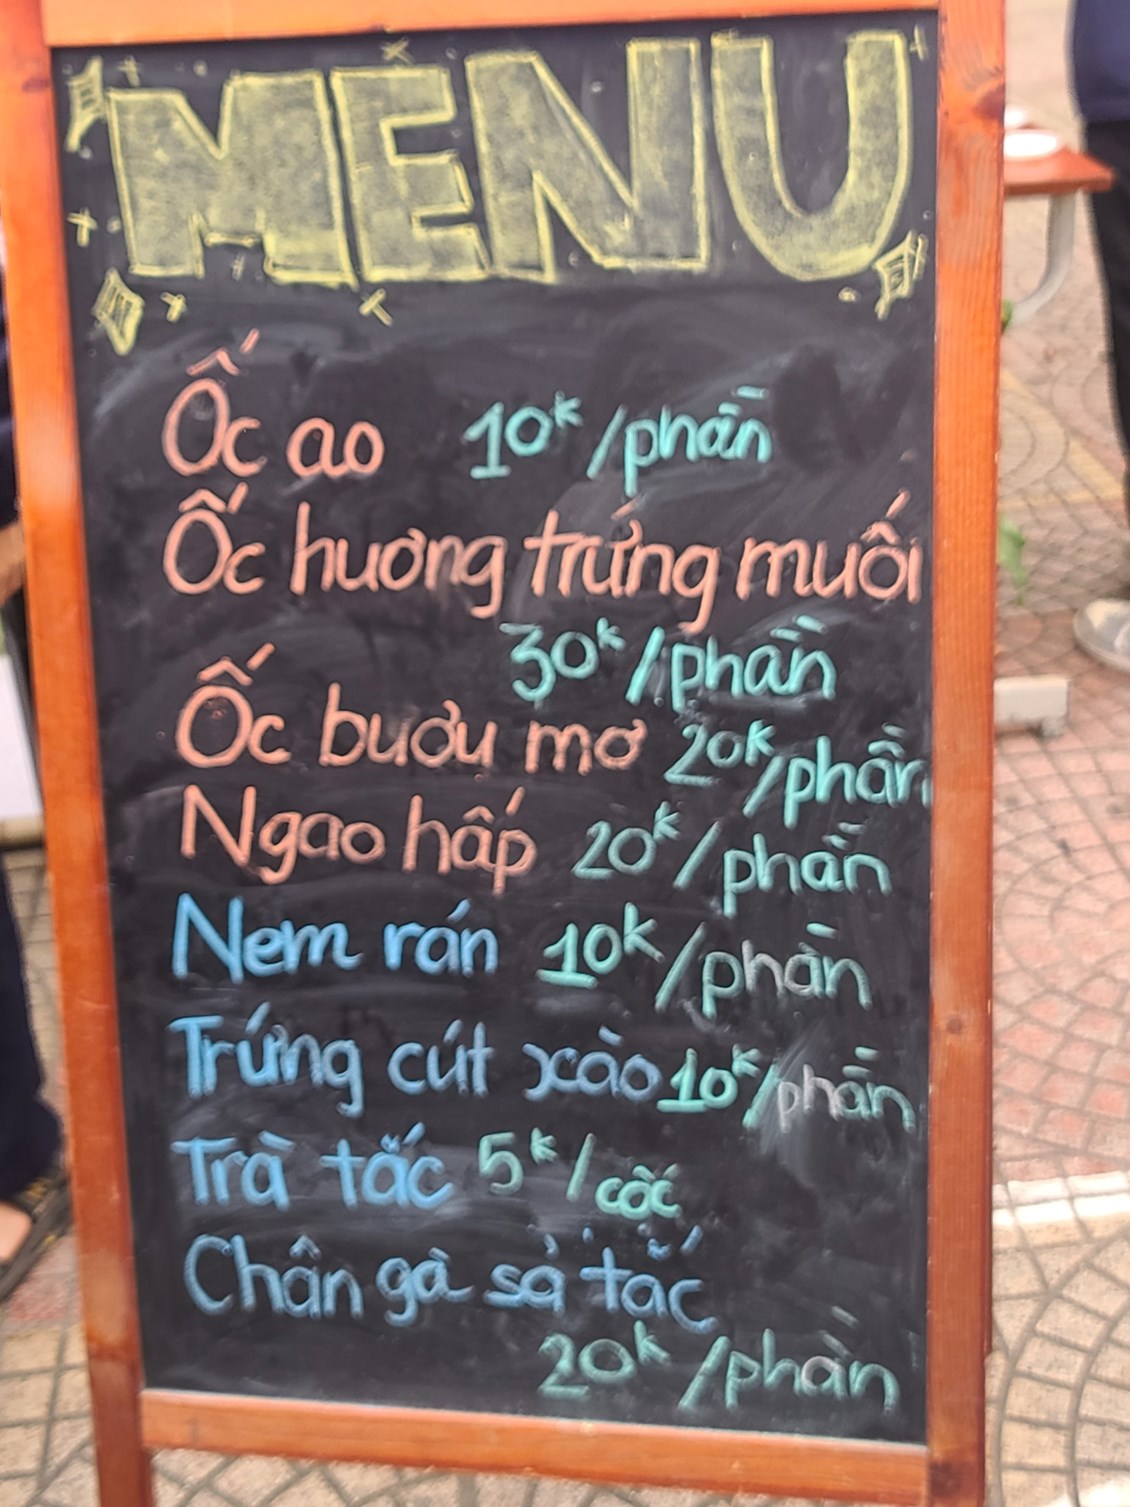 MENU
Ốc ao 10k/phần
Ốc hương trứng muối
30k/phần
Ốc bươu mơ 20k/phần
Ngao hấp 20k/phần
Nem rán 10k/phần
Trứng cút xào 10k/phần
Trà tắc 5k/cốc
Chân gà sả tắc
20k/phần